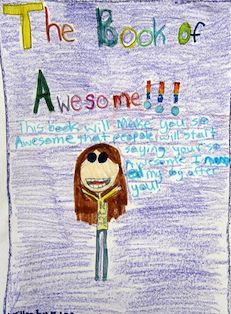 The Book of
Awesome!!!
This book will make you so
Awesome that people will start
saying your so
Awesome I
my dog after
you!